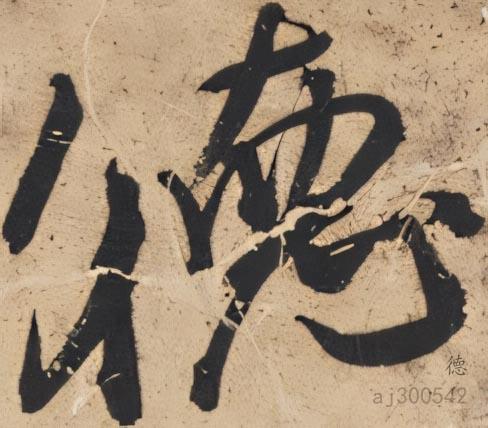 德
德
aj300542